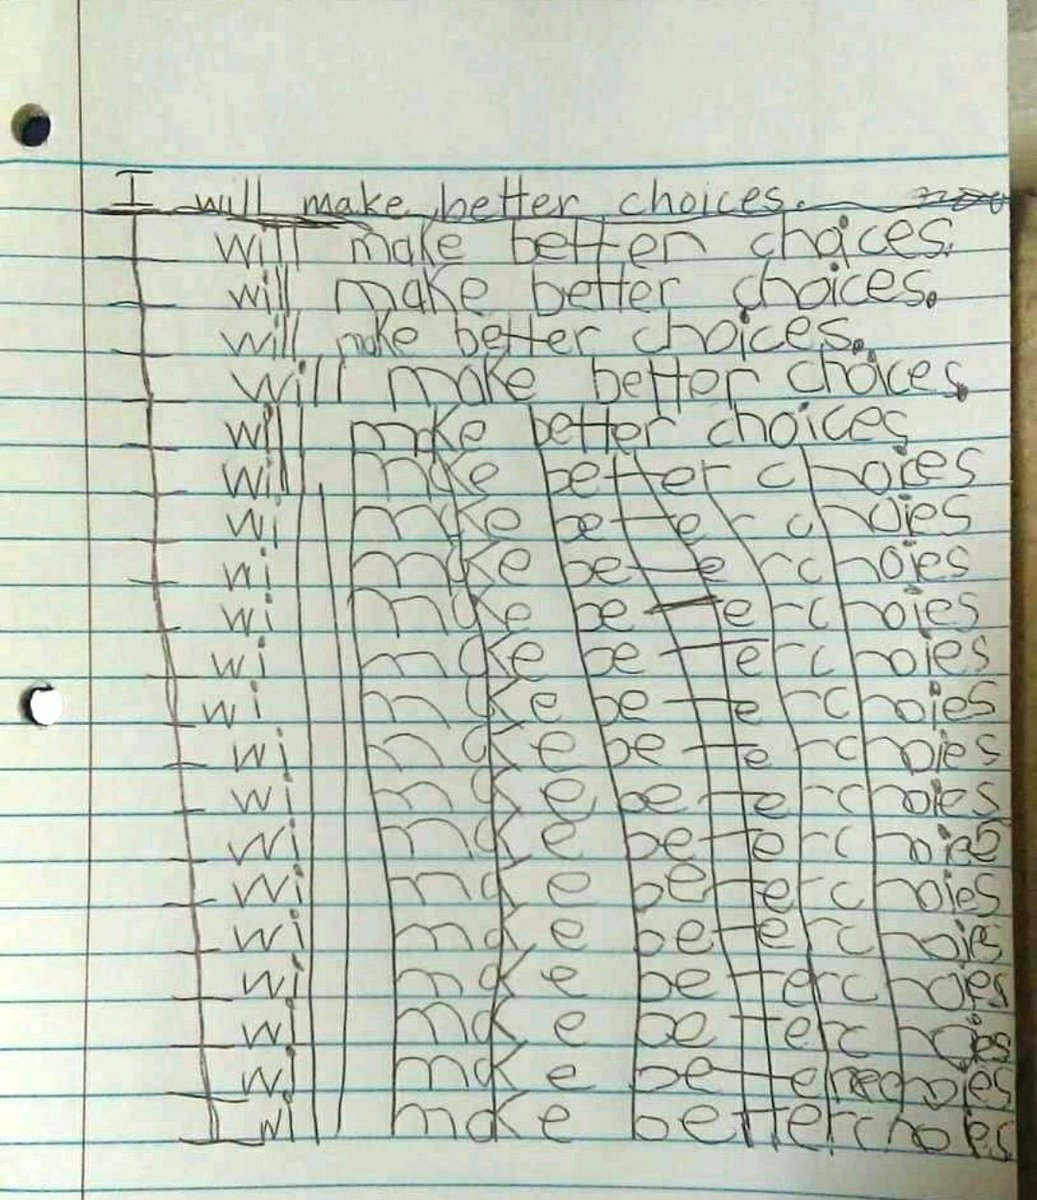 I will make better choices.
I will make better choices.
I will make better choices.
I will make better choices.
I will make better choices.
I will make better choices
I will make better choices
I will make better choies
I will make better choies
I will make better choies
I will make better choies
I will make better choies
I will make better choies
I will make better choies
I will make better choies
I will make better choies
I will make better choies
I will make better choies
I will make better choies
I will make better choies
I will make better choies